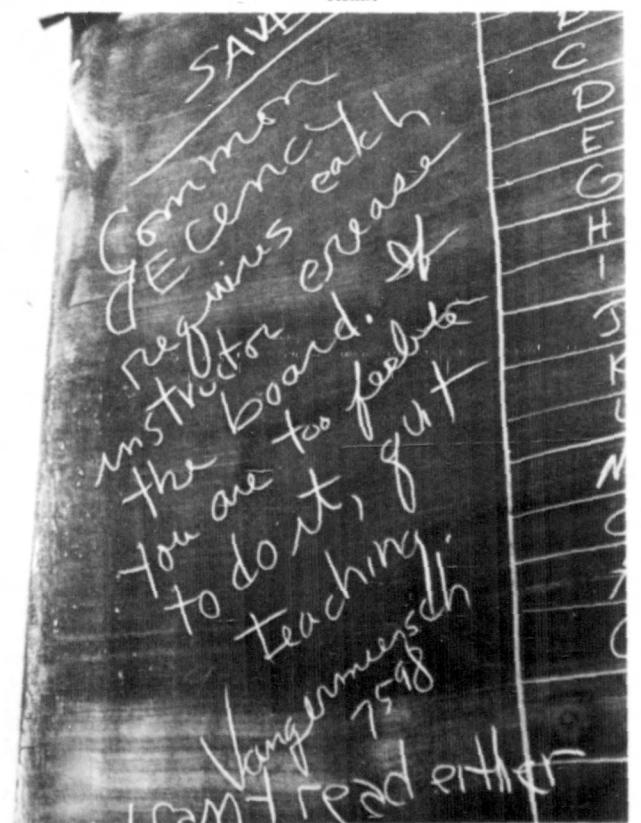 SAVE
Common
decency
requires each
instructor erease
the board. If
you are too feeble
to do it, quit
teaching.
Vangermeersch
7598
can't read either
C
D
E
G
H
I
J
K
L
M